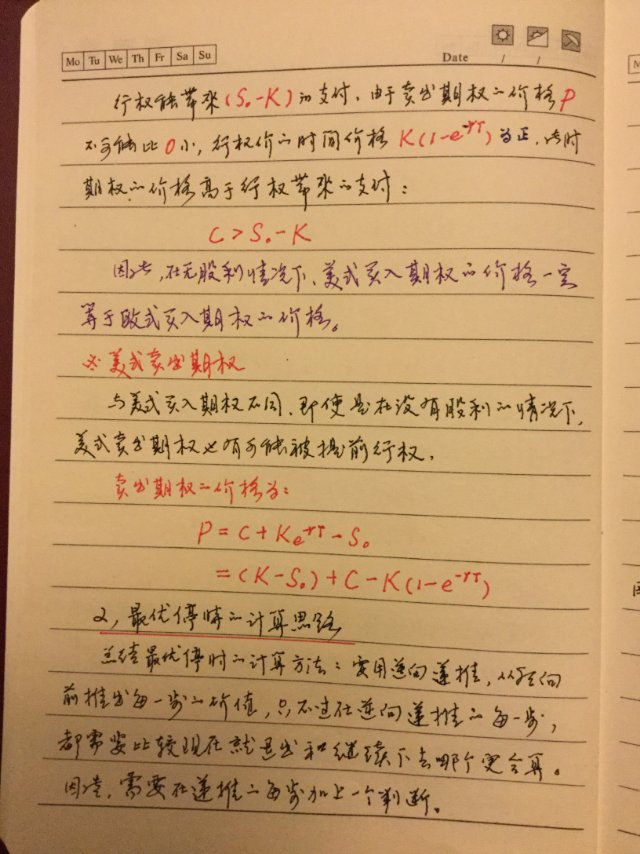 Mo Tu We Th Fr Sa Su
Date / /
行权能带来(S₀-K)的支付。由于卖出期权的价格P
不可能比0小,行权价的时间价格K(1-e^{-rT})为正,此时
期权的价格高于行权带来的支付:
C>S₀-K
因此,在无股利情况下、美式买入期权的价格一定
等于欧式买入期权的价格。
※美式卖出期权
与美式买入期权不同、即使是在没有股利的情况下,
美式卖出期权也有可能被提前行权。
卖出期权的价格为:
P=C+Ke^{-rT}-S₀
=(K-S₀)+C-K(1-e^{-rT})
2,最优停时的计算思路
总结最优停时的计算方法:要用逆向递推,从后向
前推出每一步的价值,只不过在逆向递推的每一步,
都需要比较现在就退出和继续下去哪个更合算。
因此,需要在递推的每步加上一个判断。